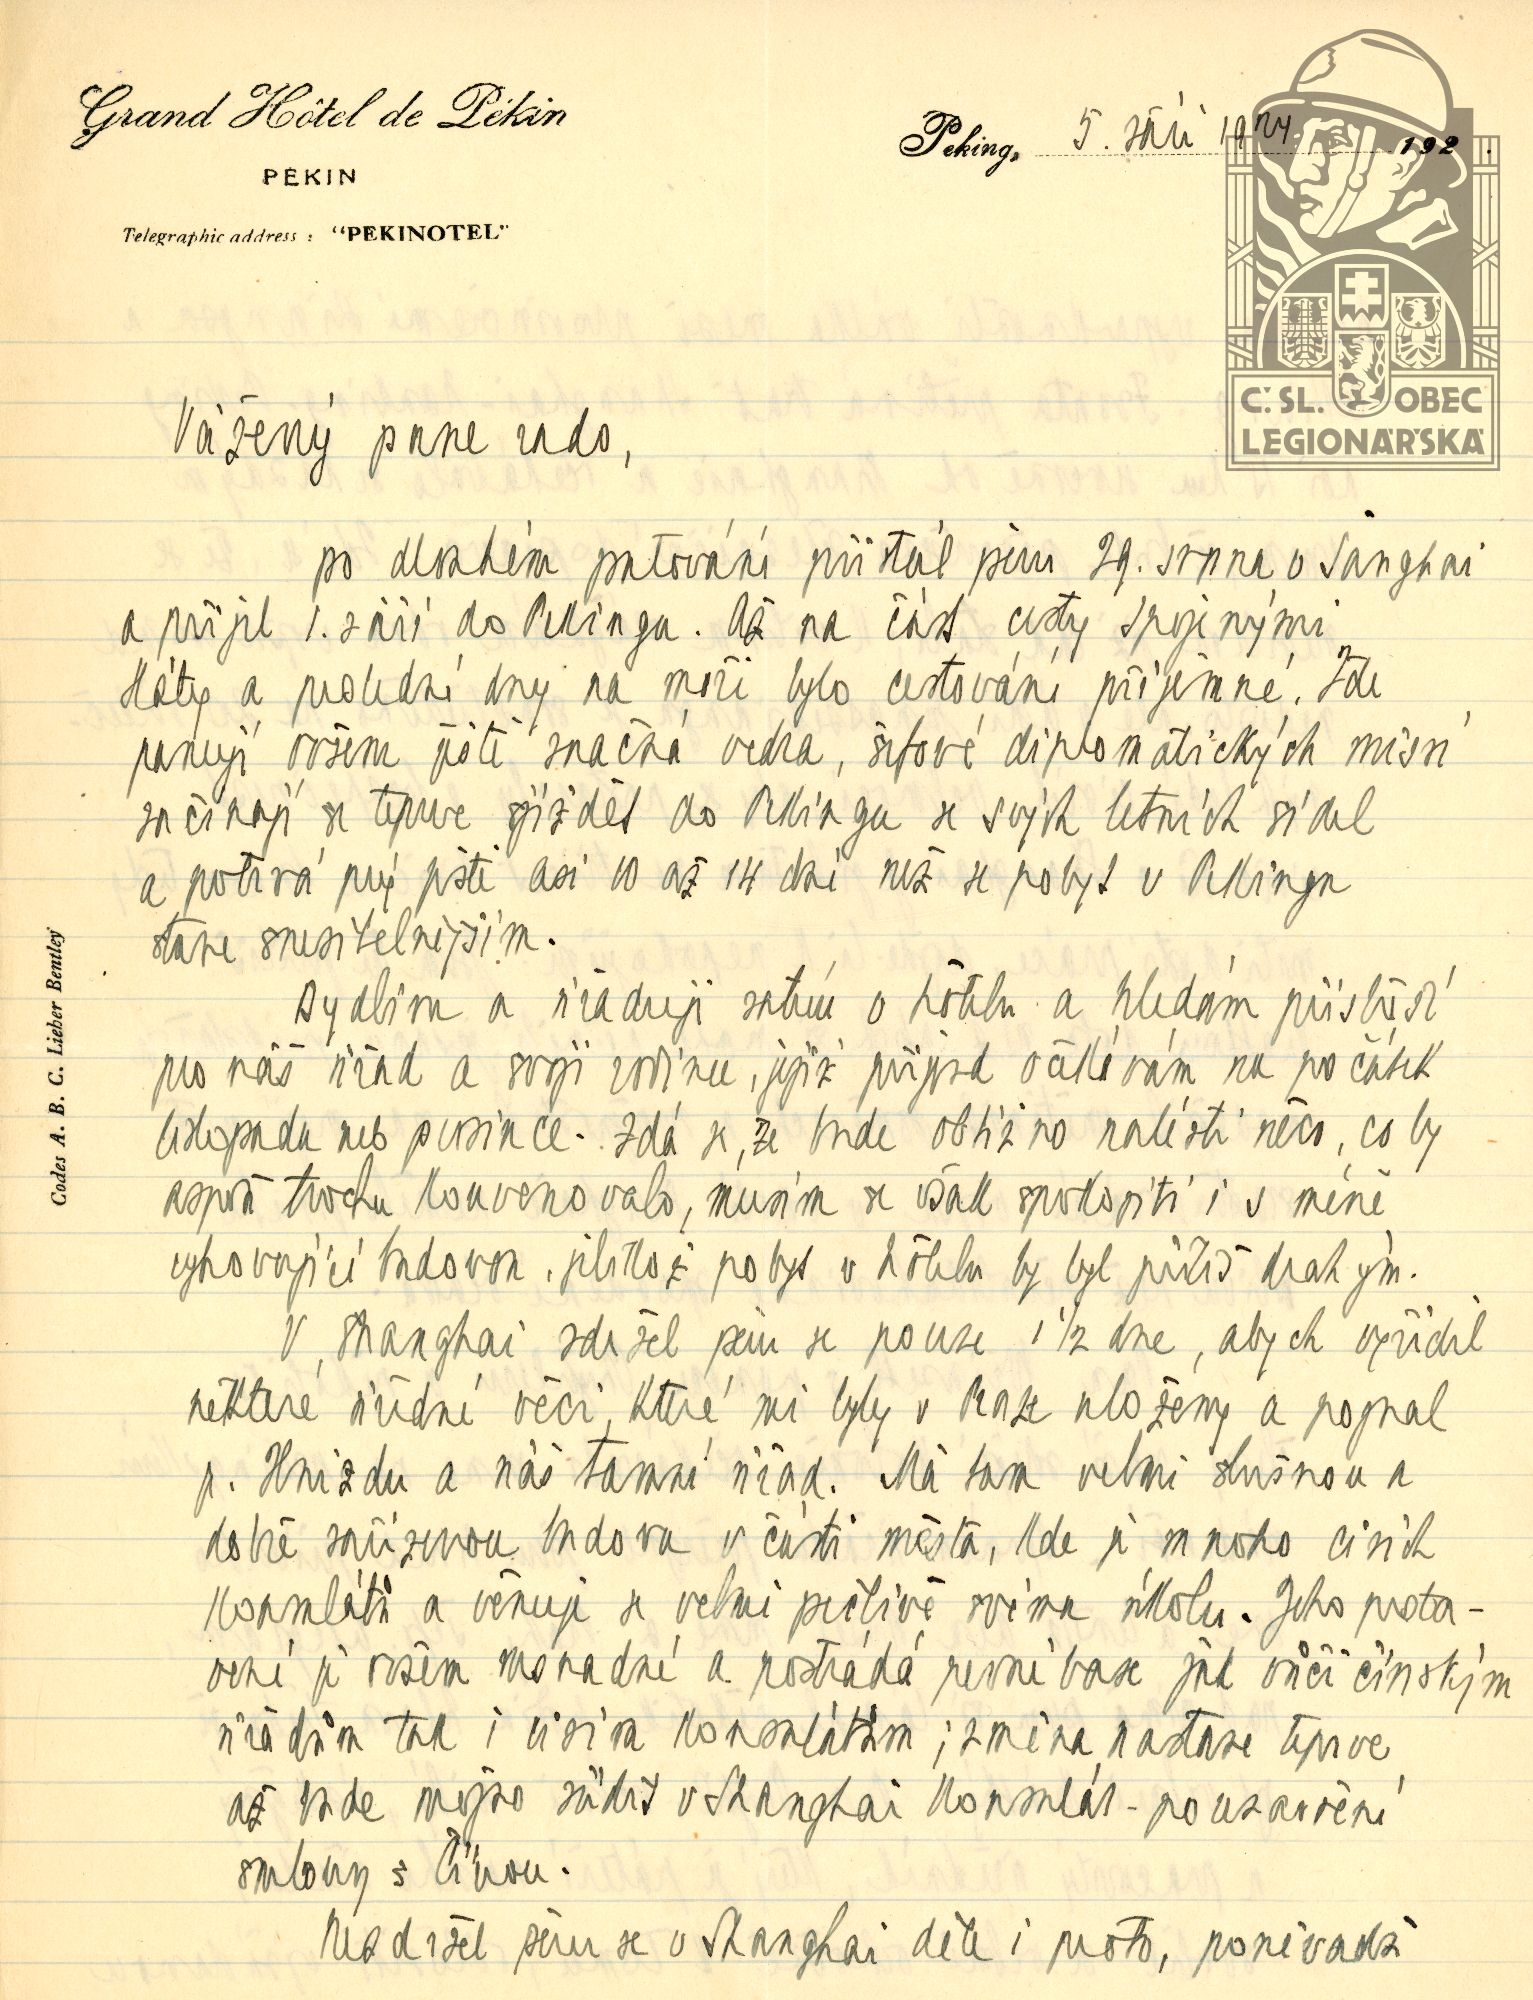 Grand Hôtel de Pékin
PÉKIN
Telegraphic address : "PEKINOTEL"
Peking, 5. září 1924 192 .
Č.SL. OBEC
LEGIONÁŘSKÁ
Codes A. B. C. Lieber Bentley
Vážený pane rado,
po dlouhém putování přistál jsem 29. srpna v Šanghai
a přijel 1. září do Pekingu. Až na část cesty Spojenými
Státy a poslední dny na moři bylo cestování příjemné. Zde
panují ovšem ještě značná vedra, šéfové diplomatických misí
začínají se teprve sjíždět do Pekingu se svých letních sídel
a potrvá prý ještě asi 10 až 14 dní než se pobyt v Pekingu
stane snesitelnějším.
Bydlím a úřaduji zatím v hôtelu a hledám přístřeší
pro náš úřad a svoji rodinu, jejíž příjezd očekávám na počátek
listopadu neb prosince. Zdá se, že bude obtížno nalésti něco, co by
aspoň trochu konvenovalo, musím se však spokojiti i s méně
vyhovující budovou, jelikož pobyt v hôtelu by byl příliš drahým.
V Shanghai zdržel jsem se pouze 1 1/2 dne, abych vyřídil
některé úřední věci, které mi byly v Praze uloženy a poznal
p. Hnízdu a náš tamní úřad. Má tam velmi slušnou a
dobře zařízenou budovu v části města, kde je mnoho cizích
konsulátů a věnuje se velmi pečlivě svému úkolu. Jeho posta-
vení je ovšem nesnadné a postrádá pevné base jak vůči čínským
úřadům tak i cizím konsulátům; změna nastane teprve
až bude možno zřídit v Shanghai konsulát - po uzavření
smlouvy s Čínou.
Nezdržel jsem se v Shanghai déle i proto, poněvadž